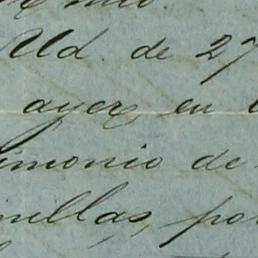 Ud. de 27
ayer en
imonio de
millas, por